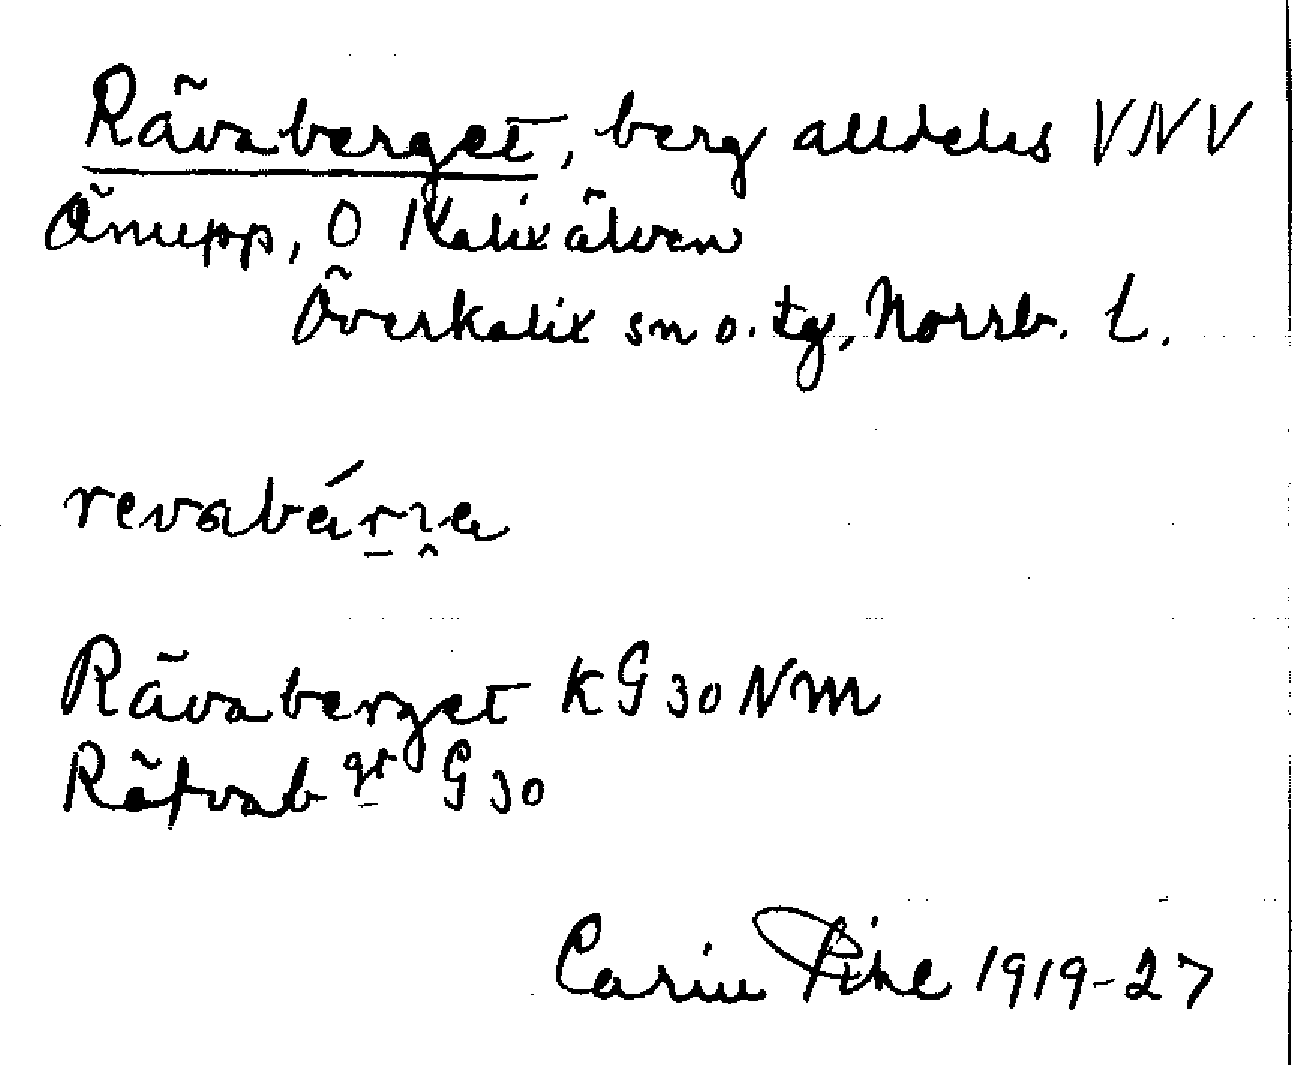 Rävaberget, berg alldeles VNV
Änupp, O Kalixälven
Överkalix sn o. tg, Norrb. L.
revabárɩa
Rävaberget KG30NM
Räfvab gr G30
Carin Pihl 1919-27